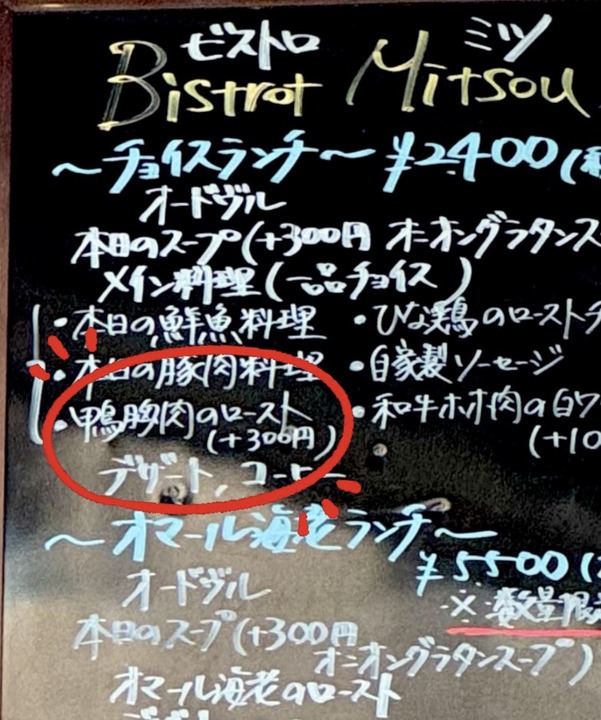 ビストロ ミツ
Bistrot Mitsou
～チョイスランチ～ ¥2,400(税
オードヴル
本日のスープ(+300円 オニオングラタンス
メイン料理(一品チョイス)
・本日の鮮魚料理 ・ひな鶏のローストチ
・本日の豚肉料理 ・自家製ソーセージ
・鴨胸肉のロースト ・和牛ホホ肉の白ワ
(+300円) (+10
デザート, コーヒー
～オマール海老ランチ～
¥5500(
オードヴル ※数量限
本日のスープ(+300円
オニオングラタンスープ)
オマール海老のロースト